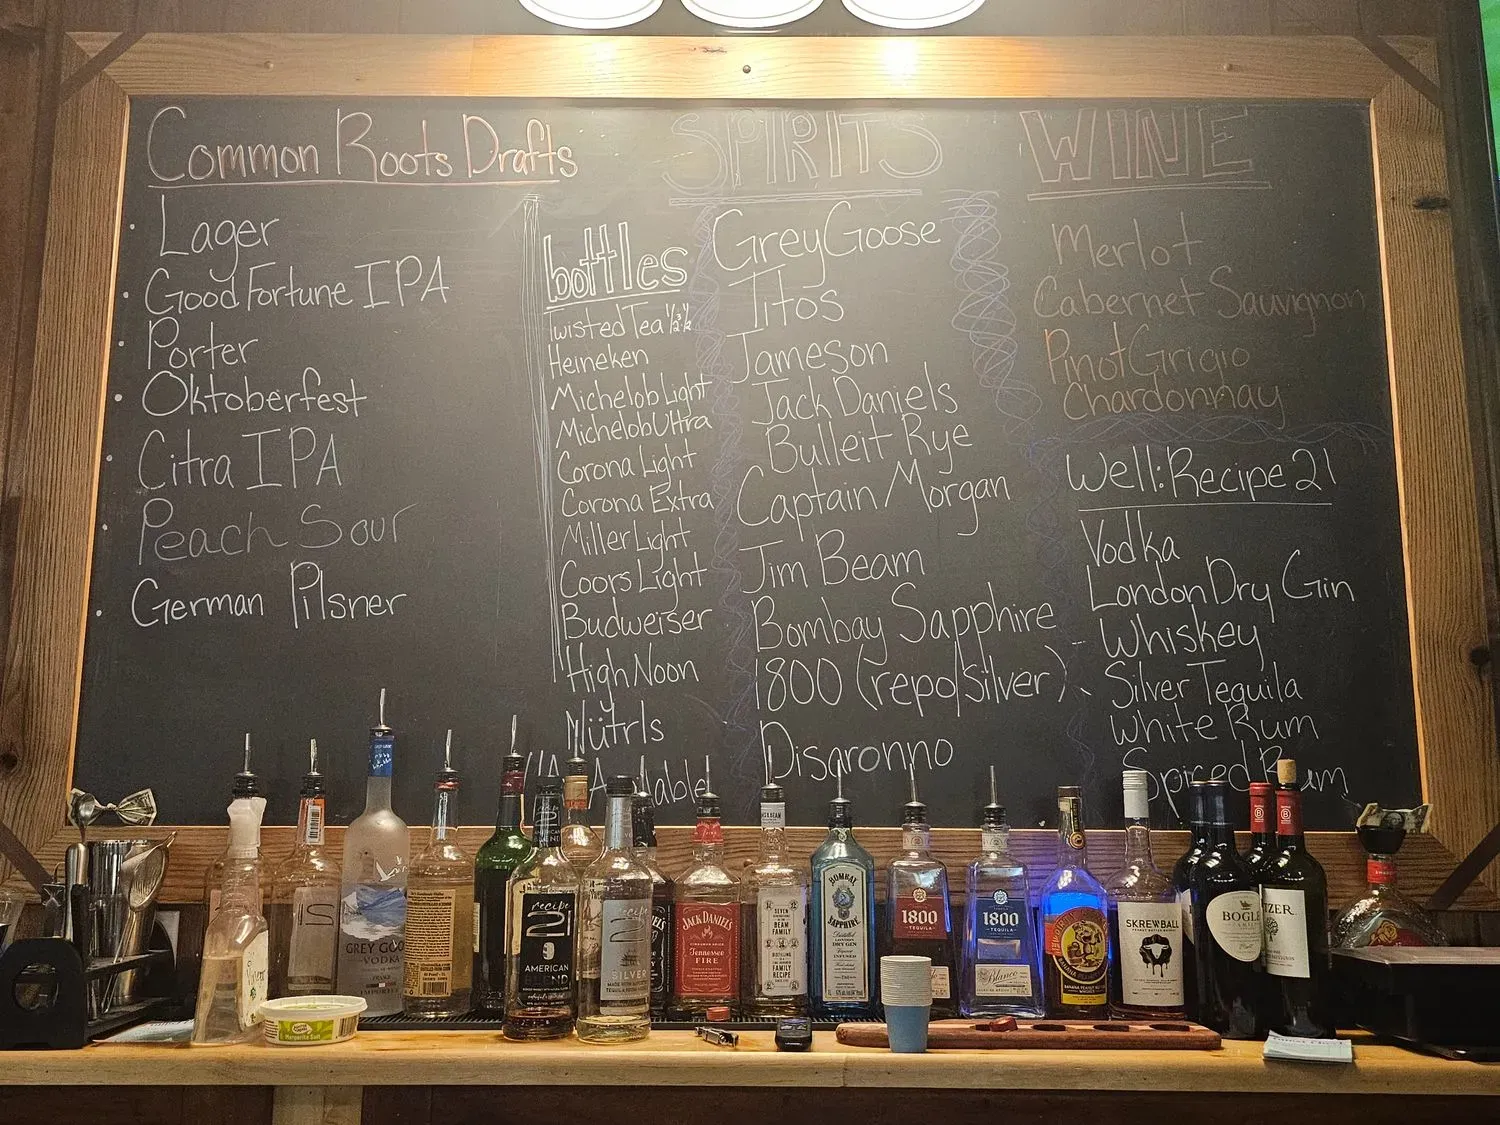 Common Roots Drafts
Lager
Good Fortune IPA
Porter
Oktoberfest
Citra IPA
Peach Sour
German Pilsner
bottles
Twisted Tea
Heineken
Michelob Light
Michelob Ultra
Corona Light
Corona Extra
Miller Light
Coors Light
Budweiser
High Noon
Nütrls
SPIRITS
GreyGoose
Titos
Jameson
Jack Daniels
Bulleit Rye
Captain Morgan
Jim Beam
Bombay Sapphire
1800 (repo/silver)
Disaronno
WINE
Merlot
Cabernet Sauvignon
Pinot Grigio
Chardonnay
Well: Recipe 21
Vodka
London Dry Gin
Whiskey
Silver Tequila
White Rum
Spiced Rum
GREY GOOSE
VODKA
recipe
21
AMERICAN
recipe
21
SILVER
JACK DANIEL'S
Tennessee
FIRE
SEVEN
BEAM
FAMILY
FAMILY
RECIPE
BOMBAY
SAPPHIRE
1800
TEQUILA
1800
TEQUILA
Blanco
SKREWBALL
BOGLE